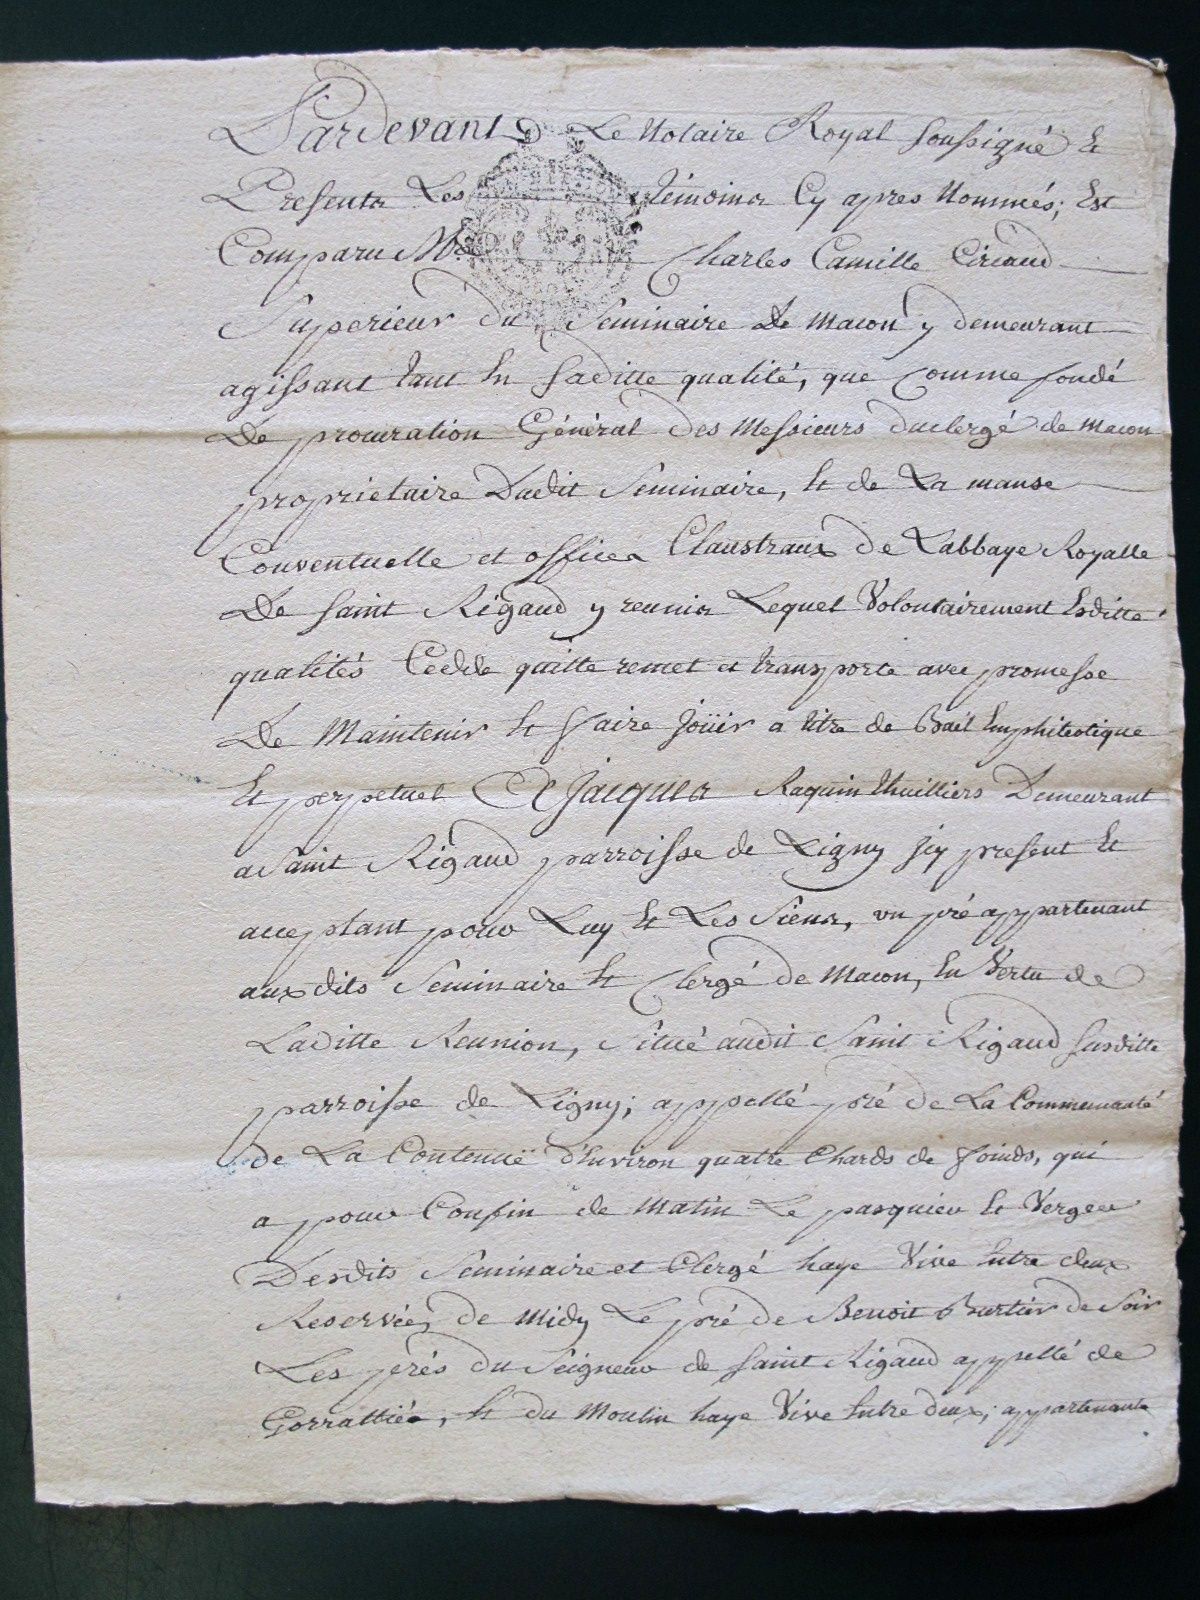 Pardevant Le Notaire Royal soussigné Et
Presents Les témoins Cy apres Nommés; Est
Comparu Mre Charles Camille Ciriaud
Superieur du Seminaire de macon y demeurant
agissant tant En saditte qualité, que Comme fondé
De procuration Général des Messieurs duclergé de macon
proprietaire Dudit Seminaire, Et de La manse
Conventuelle et offices Claustraux de Labbaye Royalle
De saint Rigaud y reunis Lequel Volontairement Esditte
qualités Cedde quitte remet et transporte avec promesse
De Maintenir Et faire joüir a titre de Bail Emphiteotique
Et perpetuel A Jacques Raquin thuilliers Demeurant
a Saint Rigaud parroisse de Ligny jcy present Et
acceptant pour Luy Et Les Siens, un pré appartenant
auxdits Seminaire Et Clergé de Macon, En Vertu de
Laditte Reunion, Situé audit Saint Rigaud susditte
parroisse de Ligny; appellé pré de La Communauté
de La Contenuë d'Environ quatre Chards de foinds, qui
a pour Confin de Matin Le pasquier Et Verger
Desdits Seminaire et Clergé haye Vive Entre deux
Reservée, de Midy Le pré de Benoit Burtier de Soir
Les prés du Seigneur de saint Rigaud appellé de
, Et du Moulin haye Vive Entre deux; appartenants